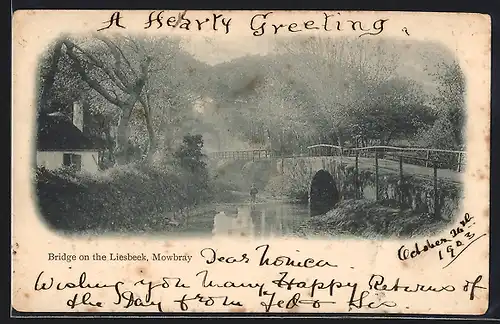 A Hearty Greeting.
October 26th
1903
Bridge on the Liesbeek, Mowbray
Dear Monica.
Wishing you Many Happy Returns of
the Day from